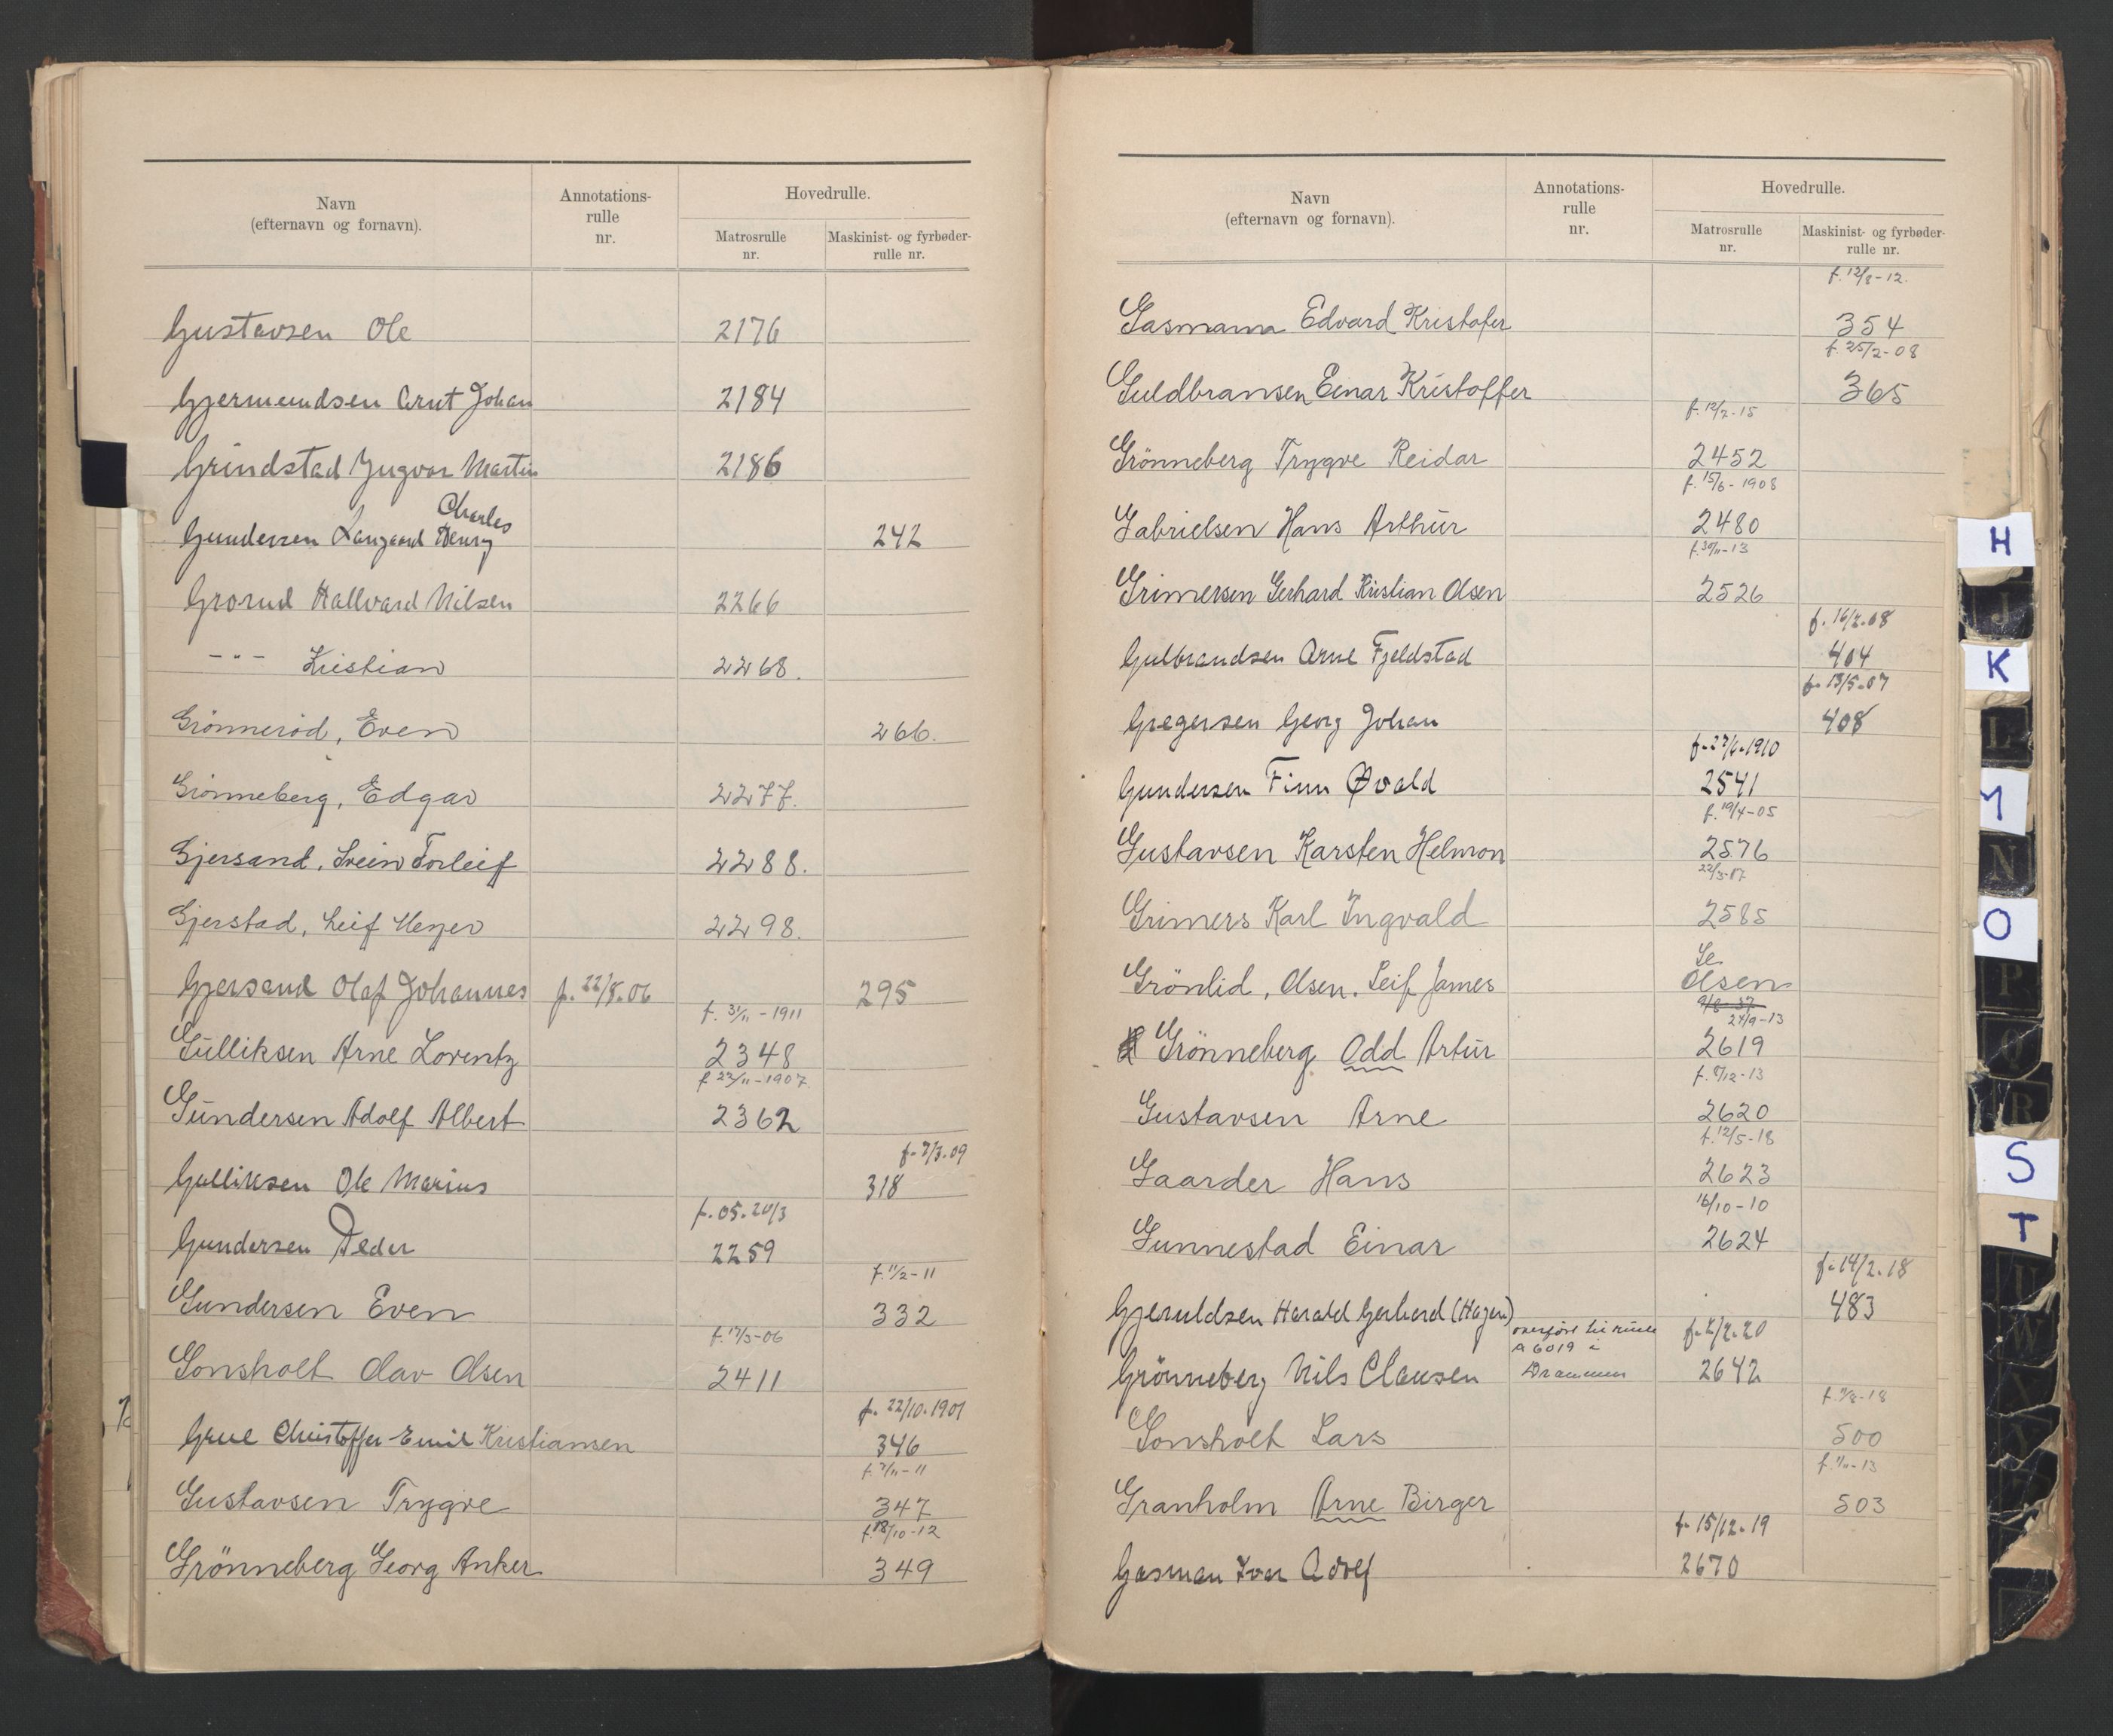 Navn
(efternavn og fornavn).
Annotations-
rulle
nr.
Hovedrulle.
Matrosrulle
nr.
Maskinist- og fyrbøder-
rulle nr.
Gustavsen Ole 2176
Gjermundsen Arnt Johan 2184
Grindstad Yngvar Martin 2186
Charles
Gundersen Langaard Henry 242
Grorud Hallvard Nilsen 2266
-"- Kristian 2268.
Grönneröd, Even 266.
Grönneberg, Edgar 2277.
Gjersand, Svein Torleif 2288.
Gjerstad, Leif Meyer 2298.
Gjersand Olaf Johannes f. 22/8.06 295
f. 31/11-1911
Gulliksen Arne Lorentz 2348
f. 22/11-1907
Gundersen Adolf Albert 2362
f. 7/3.09
Gulliksen Ole Marius 318
f. 05.20/3
Gundersen Peder 2259
f. 11/2-11
Gundersen Even 332
f. 17/3-06
Gonsholt Olav Olsen 2411
f. 22/10.1901
Grue Christoffer Emil Kristiansen 346
f. 7/11-11
Gustavsen Trygve 347
f. 18/10-12
Grönneberg Georg Anker 349
Navn
(efternavn og fornavn).
Annotations-
rulle
nr.
Hovedrulle.
Matrosrulle
nr.
Maskinist- og fyrbøder-
rulle nr.
f. 12/8-12.
Gasmann Edvard Kristofer 354
f. 25/2-08
Guldbransen Einar Kristoffer 365
f. 12/2-15
Grönneberg Trygve Reidar 2452
f. 15/6-1908
Gabrielsen Hans Arthur 2480
f. 30/11-13
Grimersen Gerhard Kristian Olsen 2526
f. 16/2.08
Gulbrandsen Arne Fjeldstad 404
f. 13/5.07
Gregersen Georg Johan 408
f. 27/6.1910
Gundersen Finn Øvald 2541
f. 19/4-05
Gustavsen Karsten Helmon 2576
22/3-07
Grimers Karl Ingvald 2585
Se
Grönlid, Olsen. Leif James Olsen
24/9-13
Grönneberg Odd Artur 2619
f. 8/12-13
Gustavsen Arne 2620
f. 12/5-18
Gaarder Hans 2623
16/10-10
Gunnestad Einar 2624
f. 14/2.18
Gjeruldsen Harald Gerhard (Hagen) 483
overført til rulle f. 2/2.20
A 6019 i
Grönneberg Nils Clausen Drammen 2642
f. 7/8-18
Gonsholt Lars 500
f. 1/11-13
Granholm Arne Birger 503
f. 15/12.19
Gasman Ivar Adolf 2670
H
J
K
L
M
N
O
P
Q
R
S
T